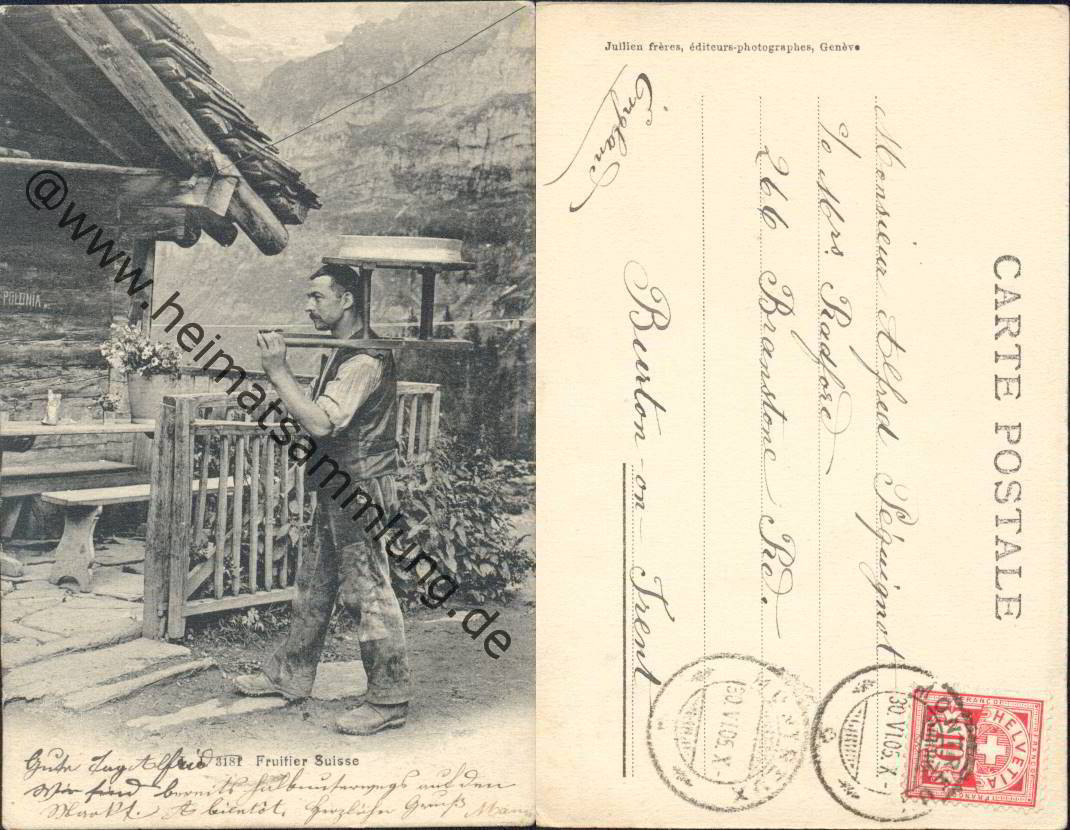 POLONIA
@www.heimatsammlung.de
3181 Fruitier Suisse
Gute Tag Alfred
Wir sind bereits halbunterwegs auf den
Markt. A bientôt, herzliche Gruß
Jullien frères, éditeurs-photographes, Genève
CARTE POSTALE
Monsieur Alfred Péquignot
c/o Mrs. Radford
266 Branstone Rd.
Burton-on-Trent
England
30.VI.05.X
30.VI.05.X
HELVETIA
FRANCO